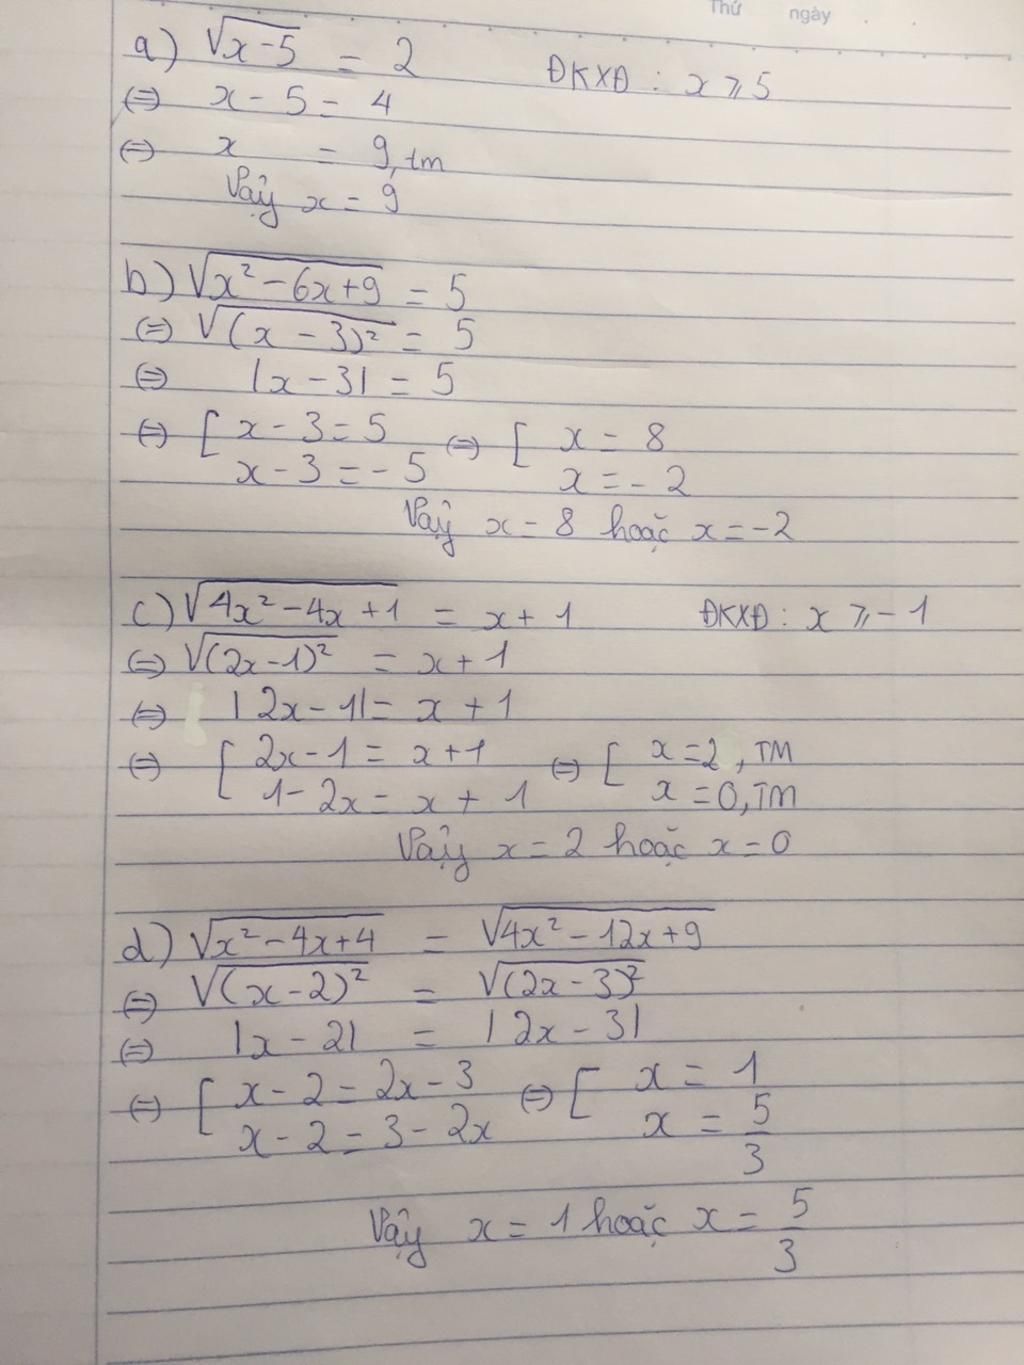 Thứ ngày
a) √(x-5) = 2 ĐKXĐ : x ⩾ 5
⇔ x - 5 = 4
⇔ x = 9, tm
Vậy x = 9
b) √(x² - 6x + 9) = 5
⇔ √((x - 3)²) = 5
⇔ |x - 3| = 5
⇔ [ x - 3 = 5 ⇔ [ x = 8
x - 3 = - 5 x = - 2
Vậy x = 8 hoặc x = -2
c) √(4x² - 4x + 1) = x + 1 ĐKXĐ : x ⩾ - 1
⇔ √((2x - 1)²) = x + 1
⇔ | 2x - 1| = x + 1
⇔ [ 2x - 1 = x + 1 ⇔ [ x = 2, TM
1 - 2x = x + 1 x = 0, TM
Vậy x = 2 hoặc x = 0
d) √(x² - 4x + 4) = √(4x² - 12x + 9)
⇔ √((x - 2)²) = √((2x - 3)²)
⇔ |x - 2| = | 2x - 3|
⇔ [ x - 2 = 2x - 3 ⇔ [ x = 1
x - 2 = 3 - 2x x = 5/3
Vậy x = 1 hoặc x = 5/3